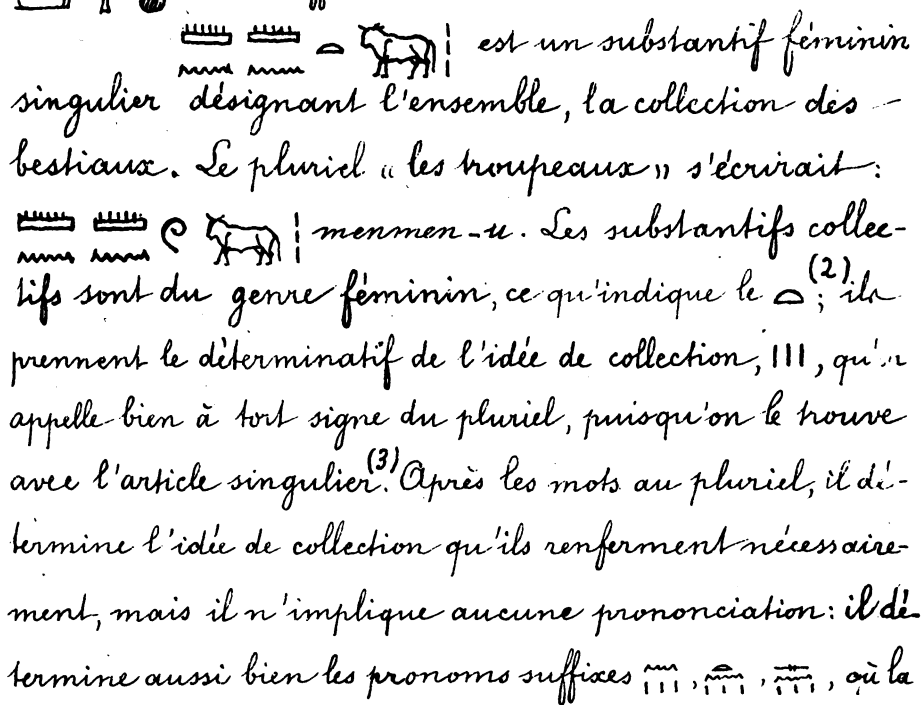 𓏠𓈖𓏠𓈖𓏏𓃒𓏥 est un substantif féminin
singulier désignant l'ensemble, la collection des
bestiaux. Le pluriel « les troupeaux » s'écrirait :
𓏠𓈖𓏠𓈖𓏲𓃒𓏥 menmen-u. Les substantifs collec-
tifs sont du genre féminin, ce qu'indique le 𓏏 (2); ils
prennent le déterminatif de l'idée de collection, III, qu'
appelle bien à tort signe du pluriel, puisqu'on le trouve
avec l'article singulier.(3) Après les mots au pluriel, il dé-
termine l'idée de collection qu'ils renferment nécessaire-
ment, mais il n'implique aucune prononciation : il dé-
termine aussi bien les pronoms suffixes 𓈖𓏥, 𓏏𓈖𓏥, 𓊃𓈖𓏥, où la